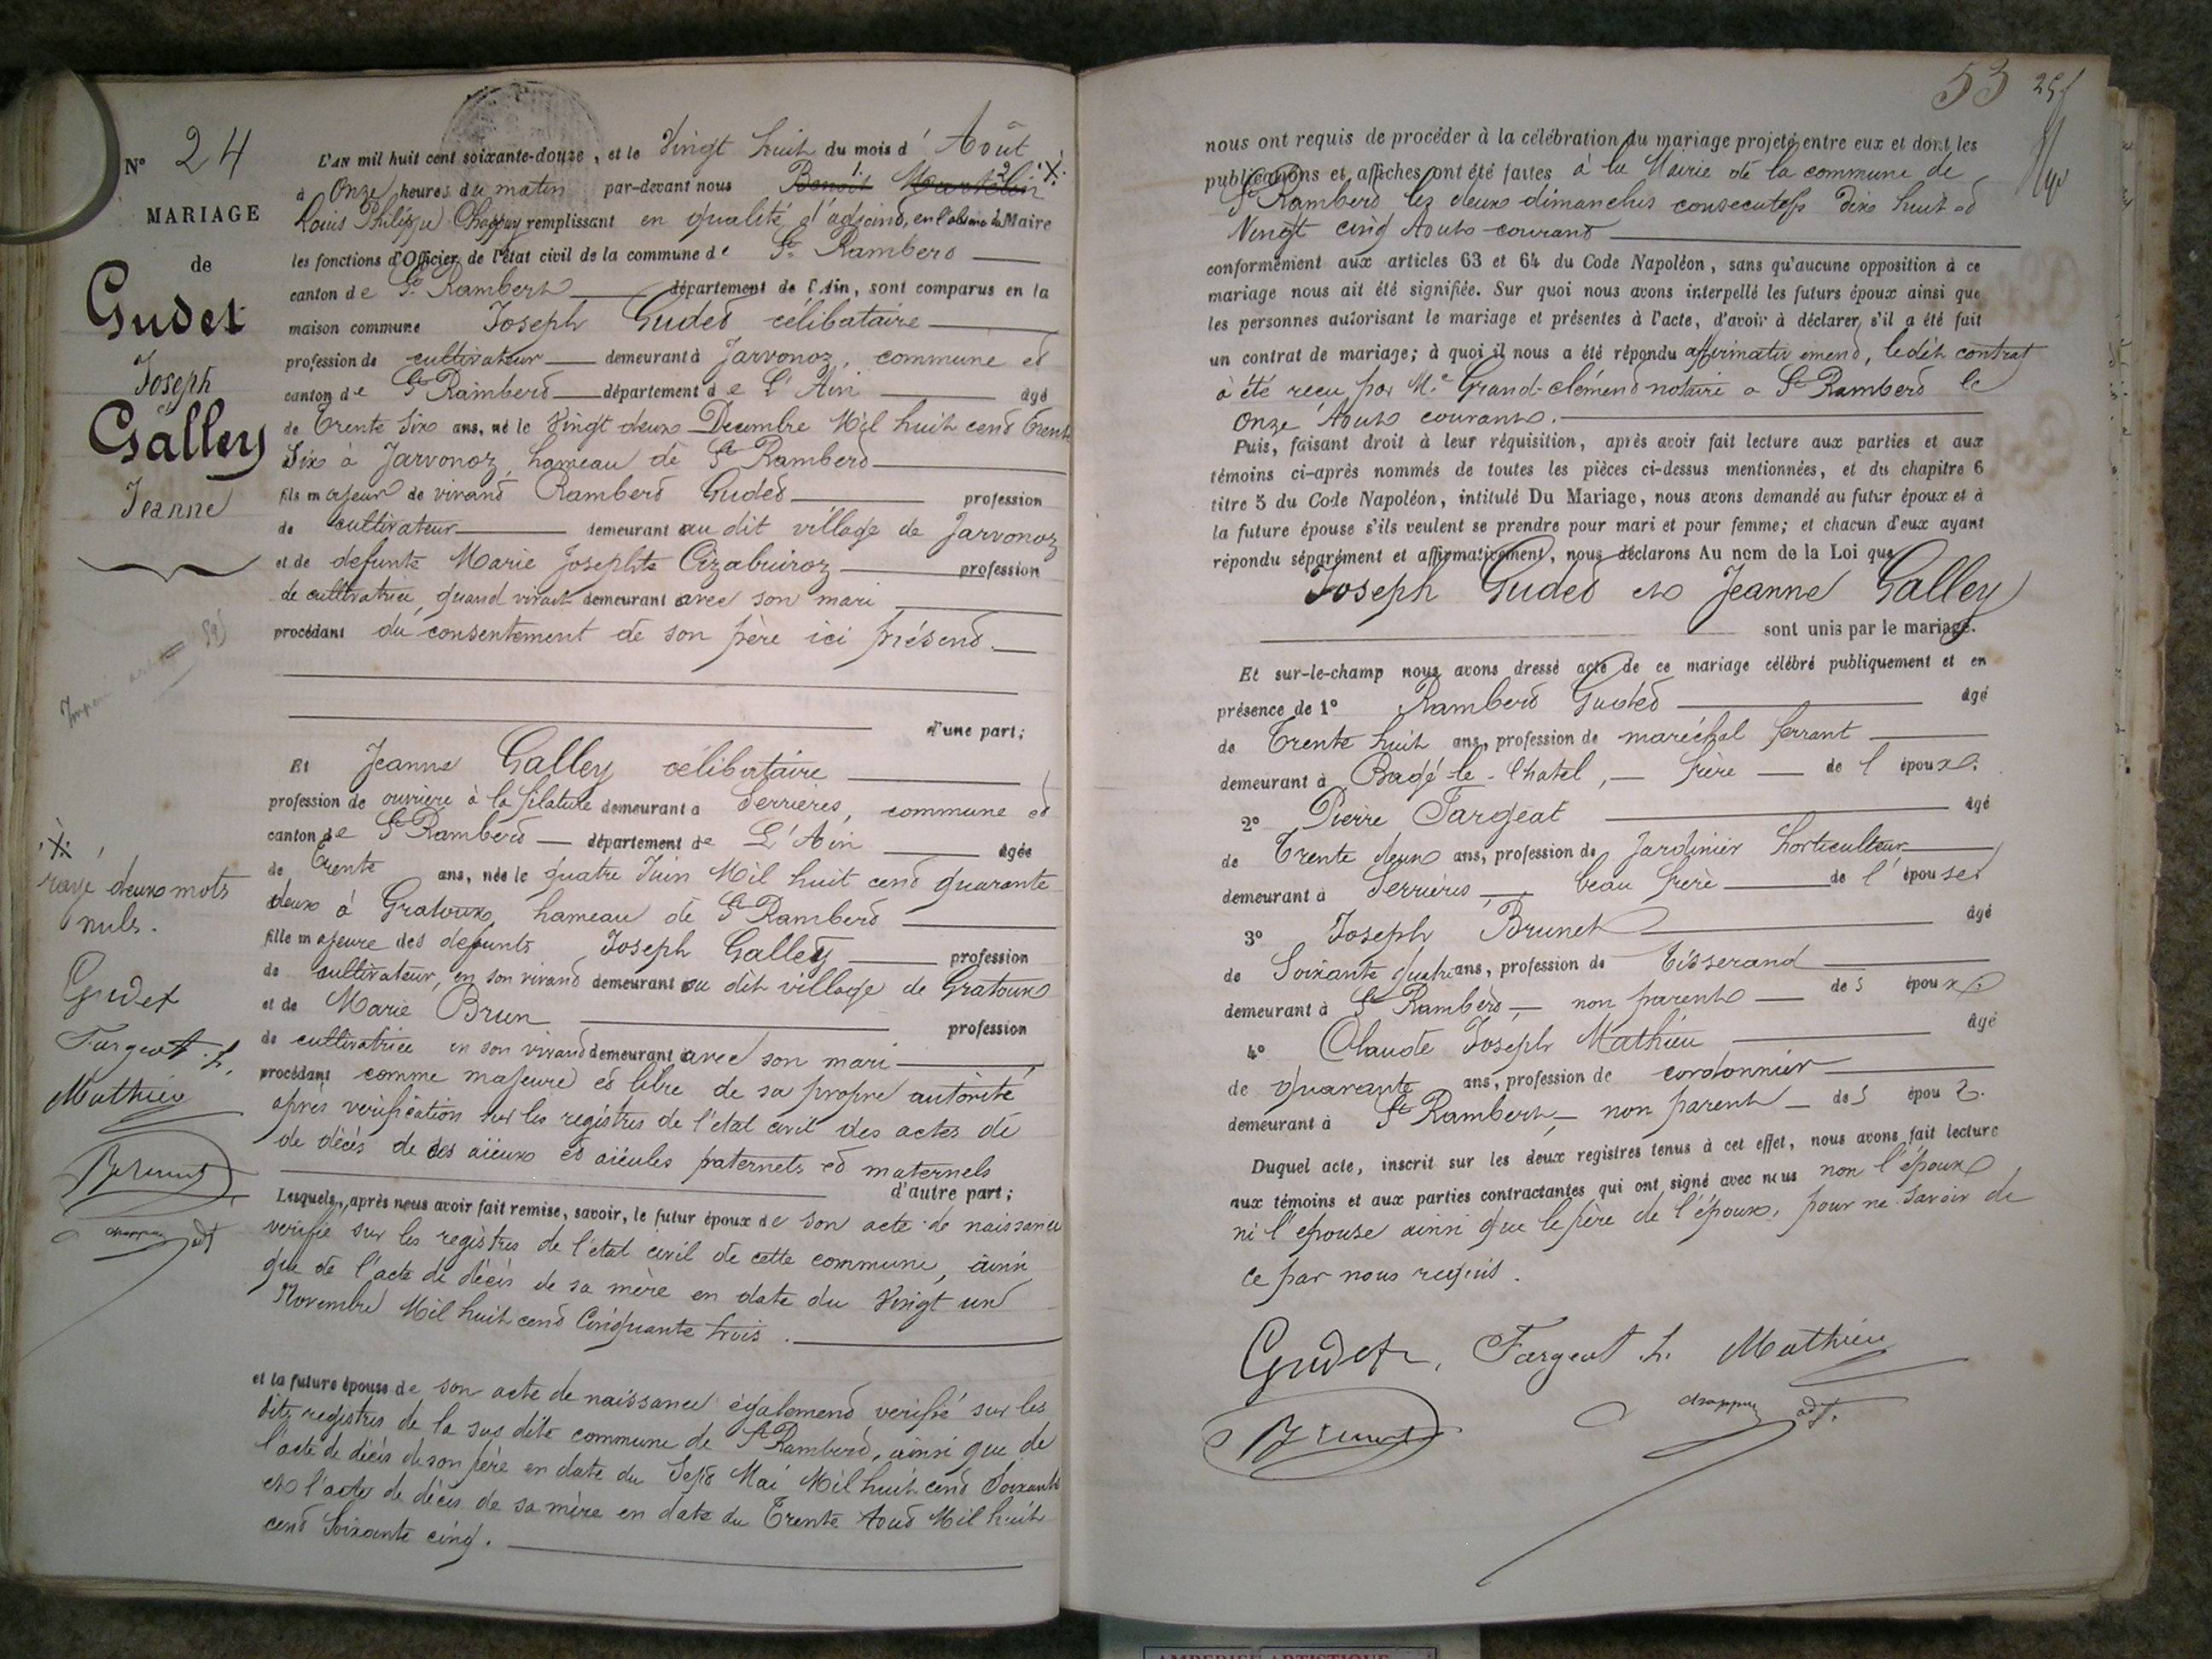 N° 24
MARIAGE
de
Gudet
Joseph
et
Galley
Jeanne
L'AN mil huit cent soixante-douze, et le Vingt huit du mois d' Août
à Onze heures du matin par-devant nous Benoit
Louis Philippe Chappuy remplissant en qualité d'adjoint, en l'absence du Maire
les fonctions d'Officier de l'état civil de la commune de St Rambert
canton de St Rambert département de l'Ain, sont comparus en la
maison commune Joseph Gudet célibataire
profession de cultivateur demeurant à Jarvonoz, commune et
canton de St Rambert département de L'Ain âgé
de Trente Six ans, né le Vingt deux Decembre Mil huit cent trente
Six à Jarvonoz, hameau de St Rambert
fils majeur de vivant Rambert Gudet profession
de cultivateur demeurant au dit village de Jarvonoz
et de defunte Marie Josephte Cizabuiroz profession
de cultivatrice, quand vivait demeurant avec son mari
procédant du consentement de son père ici présent.
d'une part;
Et Jeanne Galley célibataire
profession de ouvrière à la filature demeurant à Serrières, commune et
canton de St Rambert département de L'Ain âgée
de trente ans, née le quatre Juin Mil huit cent quarante
deux à Gratoux, hameau de St Rambert
fille majeure des defunts Joseph Galley profession
de cultivateur, en son vivant demeurant au dit village de Gratoux
et de Marie Brun profession
de cultivatrice en son vivant demeurant avec son mari
procédant comme majeure et libre de sa propre autorité
après vérification sur les registres de l'état civil des actes de
de décès de ses aïeux et aïeules paternels et maternels
d'autre part;
Lesquels, après nous avoir fait remise, savoir, le futur époux de son acte de naissance
verifié sur les registres de l'état civil de cette commune, ainsi
que de l'acte de décès de sa mère en date du Vingt un
Novembre Mil huit cent Cinquante trois.
et la future épouse de son acte de naissance également verifié sur les
dits registres de la sus dite commune de St Rambert, ainsi que de
l'acte de décès de son père en date du Sept Mai Mil huit cent Soixante
et l'acte de décès de sa mère en date du Trente Aout Mil huit
cent Soixante cinq.
rayé deux mots
nuls.
Gudet
Fargeat
Mathieu
Brunet
Chappuy adt
53
nous ont requis de procéder à la célébration du mariage projeté entre eux et dont les
publications et affiches ont été faites à la Mairie de la commune de
St Rambert les deux dimanches consecutifs dix huit et
Vingt cinq Aout courant
conformément aux articles 63 et 64 du Code Napoléon, sans qu'aucune opposition à ce
mariage nous ait été signifiée. Sur quoi nous avons interpellé les futurs époux ainsi que
les personnes autorisant le mariage et présentes à l'acte, d'avoir à déclarer s'il a été fait
un contrat de mariage; à quoi il nous a été répondu affirmativement, le dit contrat
à été reçu par Me Grand-clément notaire a St Rambert le
Onze Aout courant.
Puis, faisant droit à leur réquisition, après avoir fait lecture aux parties et aux
témoins ci-après nommés de toutes les pièces ci-dessus mentionnées, et du chapitre 6
titre 5 du Code Napoléon, intitulé Du Mariage, nous avons demandé au futur époux et à
la future épouse s'ils veulent se prendre pour mari et pour femme; et chacun d'eux ayant
répondu séparément et affirmativement, nous déclarons Au nom de la Loi que
Joseph Gudet et Jeanne Galley
sont unis par le mariage.
Et sur-le-champ nous avons dressé acte de ce mariage célébré publiquement et en
présence de 1° Rambert Gudet âgé
de Trente huit ans, profession de maréchal ferrant
demeurant à Bagé-le-Chatel, frère de l'époux.
2° Pierre Fargeat âgé
de Trente deux ans, profession de Jardinier horticulteur
demeurant à Serrières, beau frère de l'épouse
3° Joseph Brunet âgé
de Soixante quatre ans, profession de tisserand
demeurant à St Rambert, non parent des époux.
4° Claude Joseph Mathieu âgé
de quarante ans, profession de cordonnier
demeurant à St Rambert, non parent des époux.
Duquel acte, inscrit sur les deux registres tenus à cet effet, nous avons fait lecture
aux témoins et aux parties contractantes qui ont signé avec nous non l'époux,
ni l'epouse ainsi que le père de l'époux, pour ne savoir de
ce par nous requis.
Gudet, Fargeat Mathieu
Brunet
Chappuy adt.